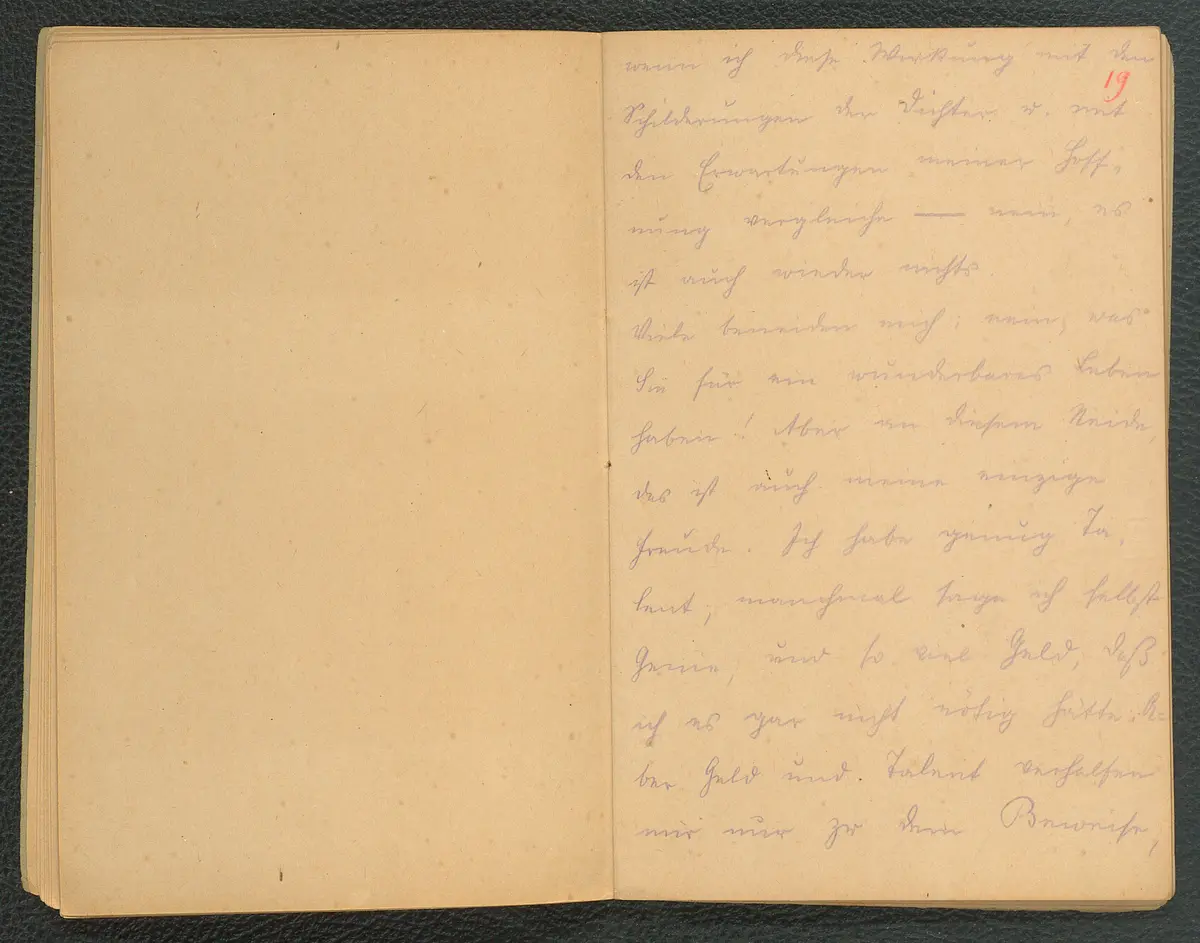 wenn ich diese Wirkung mit den
19
Schilderungen der Dichter u. mit
den Erwartungen meiner Hoff-
nung vergleiche — nein, es
ist auch wieder nichts.
Viele beneiden mich; nein, was
Sie für ein wunderbares Leben
haben! Aber an diesem Neide,
das ist auch meine einzige
Freude. Ich habe genug Ta-
lent, manchmal sage ich selbst
Genie, und so viel Geld, daß
ich es gar nicht nötig hätte. A-
ber Geld und Talent verhalfen
mir nur zu dem Beweise,